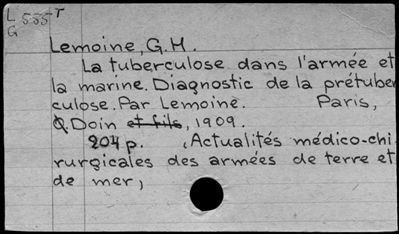 L 555 T
G
Lemoine, G.H.
La tuberculose dans l'armée et
la marine. Diagnostic de la prétuber
culose. Par Lemoine. Paris,
O. Doin et fils, 1909.
204 p. (Actualités médico-chi-
rurgicales des armées de terre et
de mer)